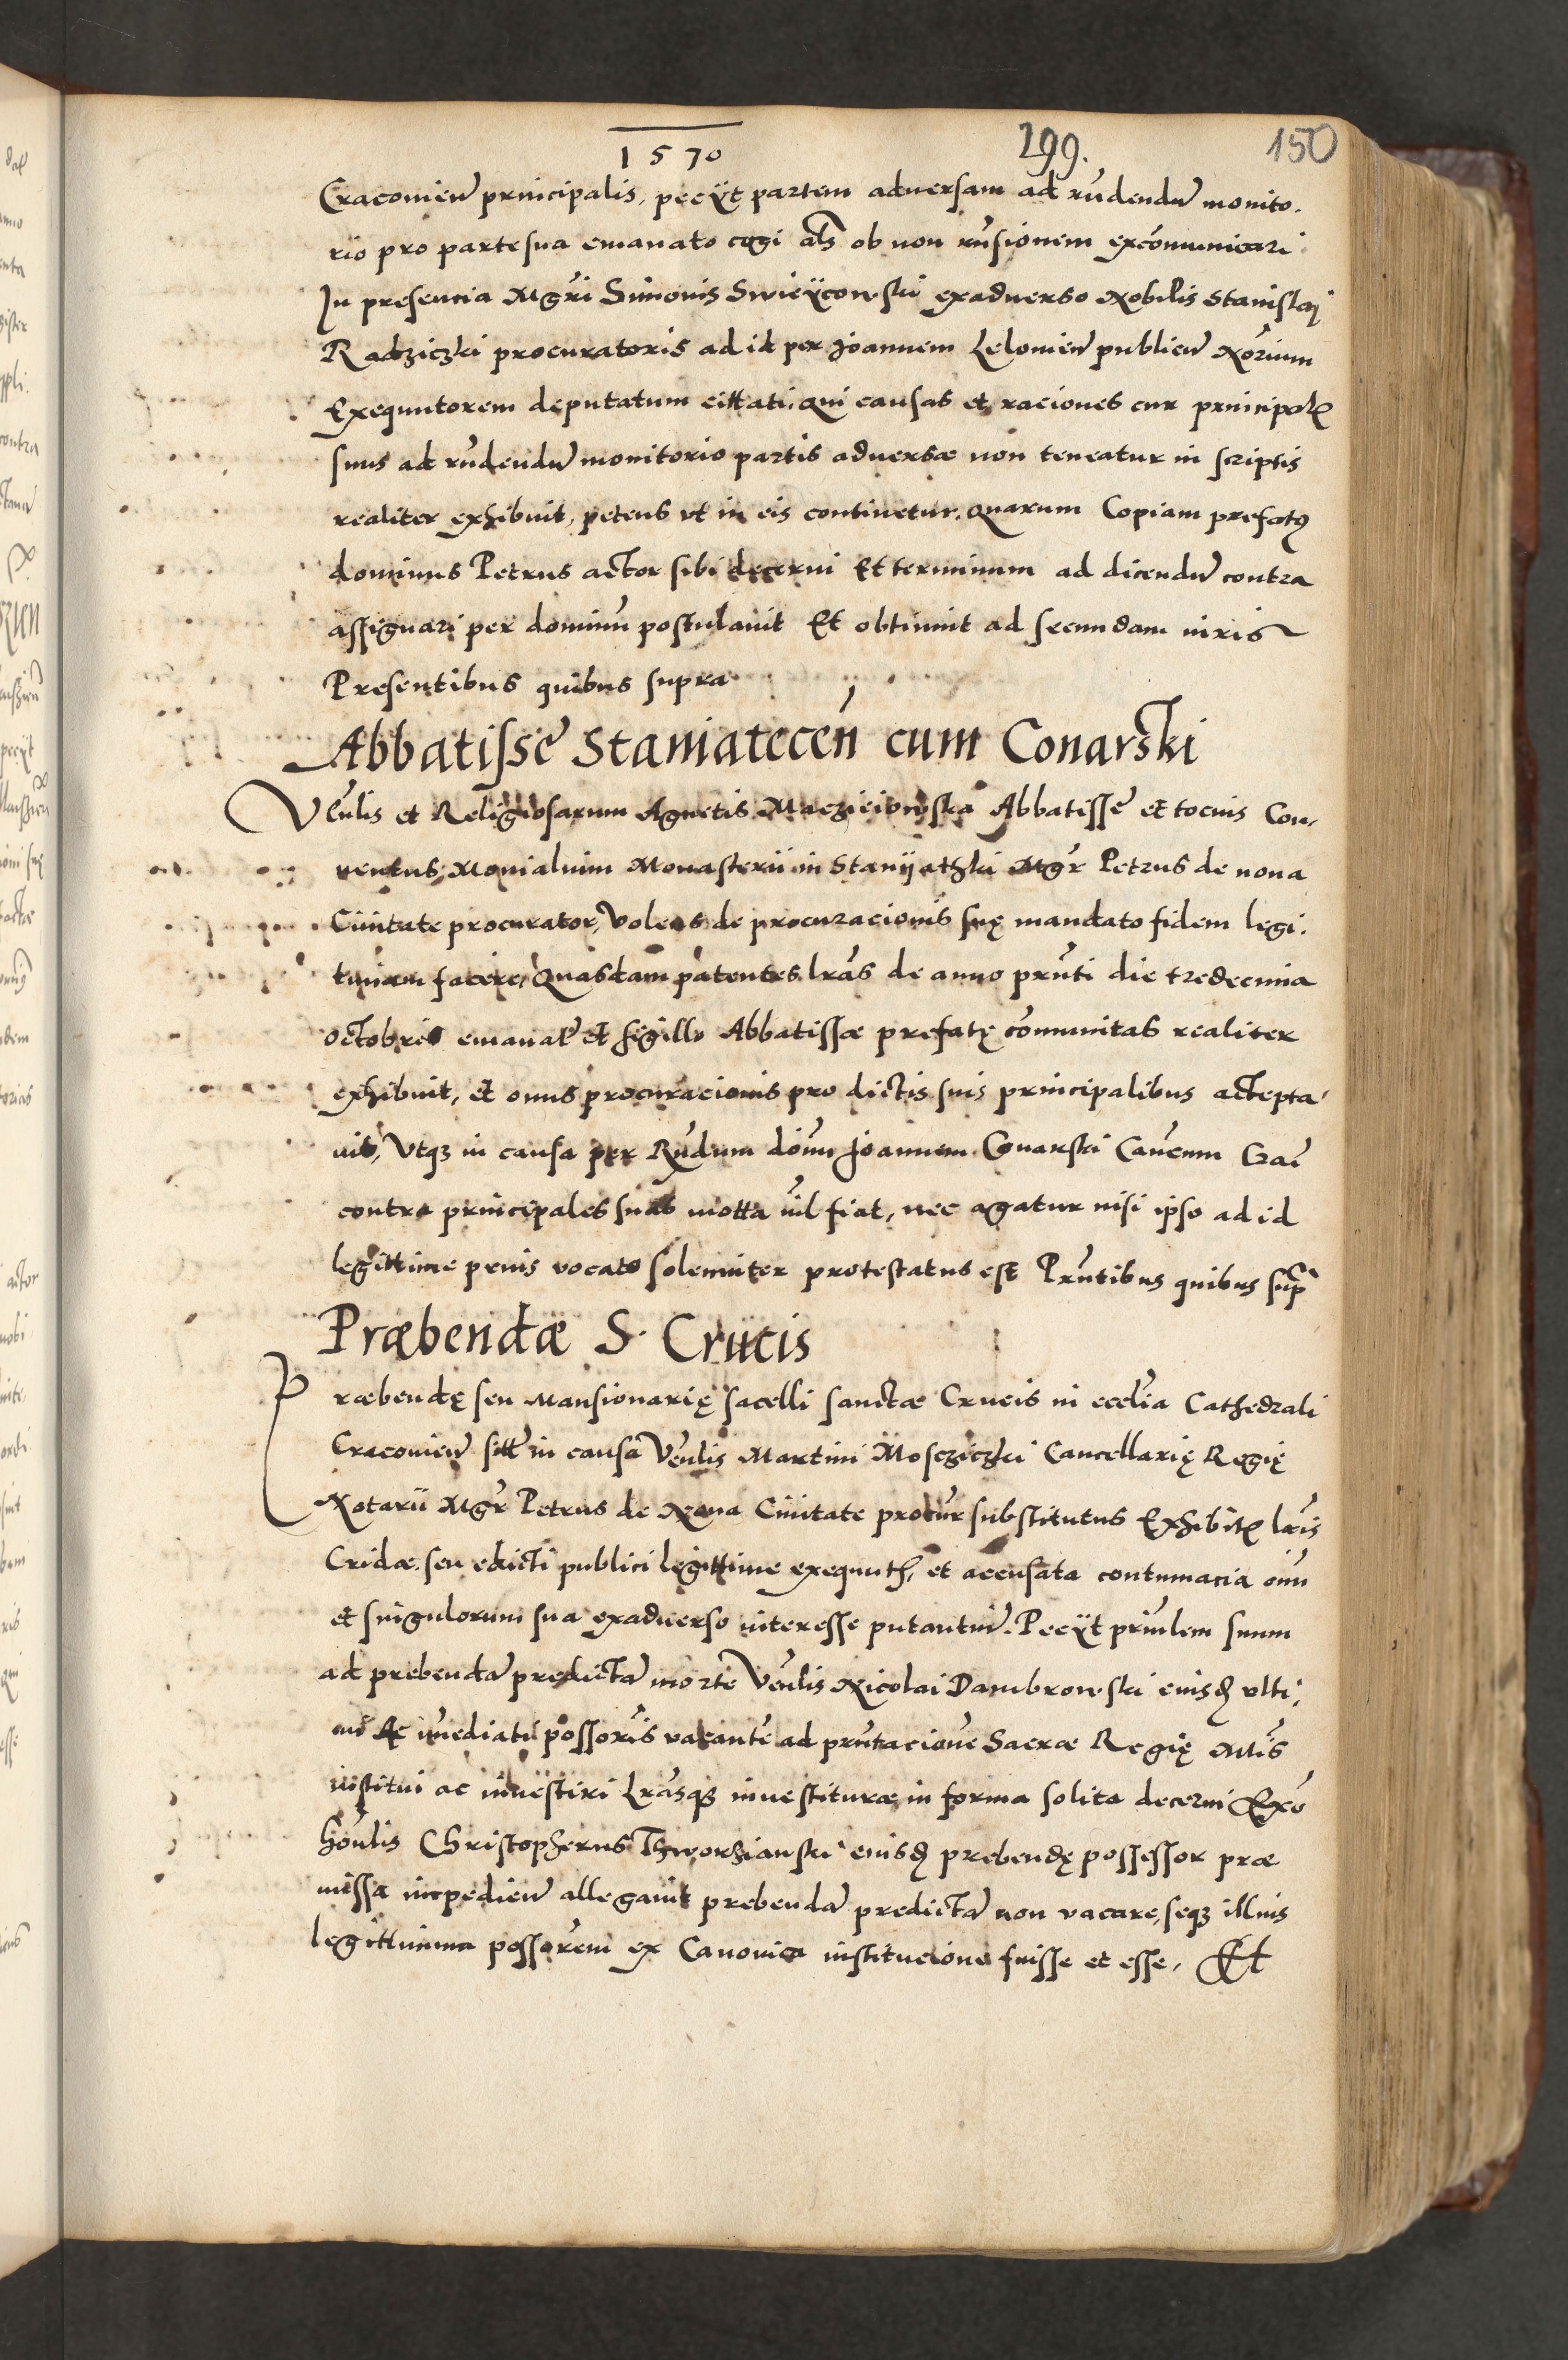 1570 299. 150
Cracovien̄ principalis, peciit partem adversam ad rn̄dendu monito-
rio pro parte sua emanato cogi als̄ ob non rn̄sionem excōmunicari
In presencia Mgr̄i Simonis Swieÿcowski exadverso Nobilis Stanislai
Radziczki procuratoris ad id per Joannem Lelovien̄ publicu Nōrium
Exequutorem deputatum cittati, qui causas et raciones cur principal
suus ad rn̄dendu monitorio partis adversæ non teneatur in scriptis
realiter exhibuit, petens ut in eis continetur. Quarum Copiam prefatꝰ
dominus Petrus actor sibi decerni Et terminum ad dicendu contra
assignari per dominū postulavit Et obtinuit ad secundam iuris
Presentibus quibus supra
Abbatissę Staniatecen̄ cum Conarski
Vēnlis et Religiosarum Agnetis Macziciowska Abbatissę et tocius Con-
ventus Monialium Monasterii in Staniiathki Mgr̄ Petrus de nova
Civitate procurator, Volens de procuracionis suę mandato fidem legi-
timam facere, Quasdam patentes lrās de anno prn̄ti die tredecima
octobris emanat et sigillo Abbatissæ prefatę cōmunitas realiter
exhibuit, et onus procuracionis pro dictis suis principalibus actepta-
vit, Utqꝫ in causa per Rn̄dum dōnū Joannem Conarski Cancum Crac̄
contra principales suas motta nīl fiat, nec agatur nisi ipso ad id
legittime prius vocato solenniter protestatus est Prn̄tibus quibus supr̄
Præbendæ S. Crucis
Præbendę seu Mansionarię sacelli sanctæ Crucis in ecclīa Cathedrali
Cracovien̄ sitt in causa Vēnlis Martini Mosczičzki Cancellarię Regię
Notarii Mgr̄ Petrus de Nova Civitate procūr substitutus Exhibit lrīs
Cridæ, seu edicti publici legittime exequuth, et accusata contumacia om̄
et singulorum sua exadverso interesse putantiū. Peciit prin̄lem suum
ad prebendā predictā morte Vēnlis Nicolai Dambrowski eiusd ulti-
mi Ac īmediati possor̄is vacantē ad prn̄tacionē Sacræ Regię Mtīs
institui ac investiri Lrāsqꝫ investituræ in forma solita decerni Exō
Hōnlis Christopherus Thworzianski eiusd prebendę possessor præ
missa impediens allegavit prebendā predictā non vacare, seqꝫ illius
legittimum possor̄em ex Canonica institucione fuisse et esse, Et